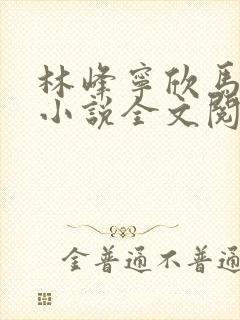 林峰寧欣馬
小說全文閱
金普通不普通